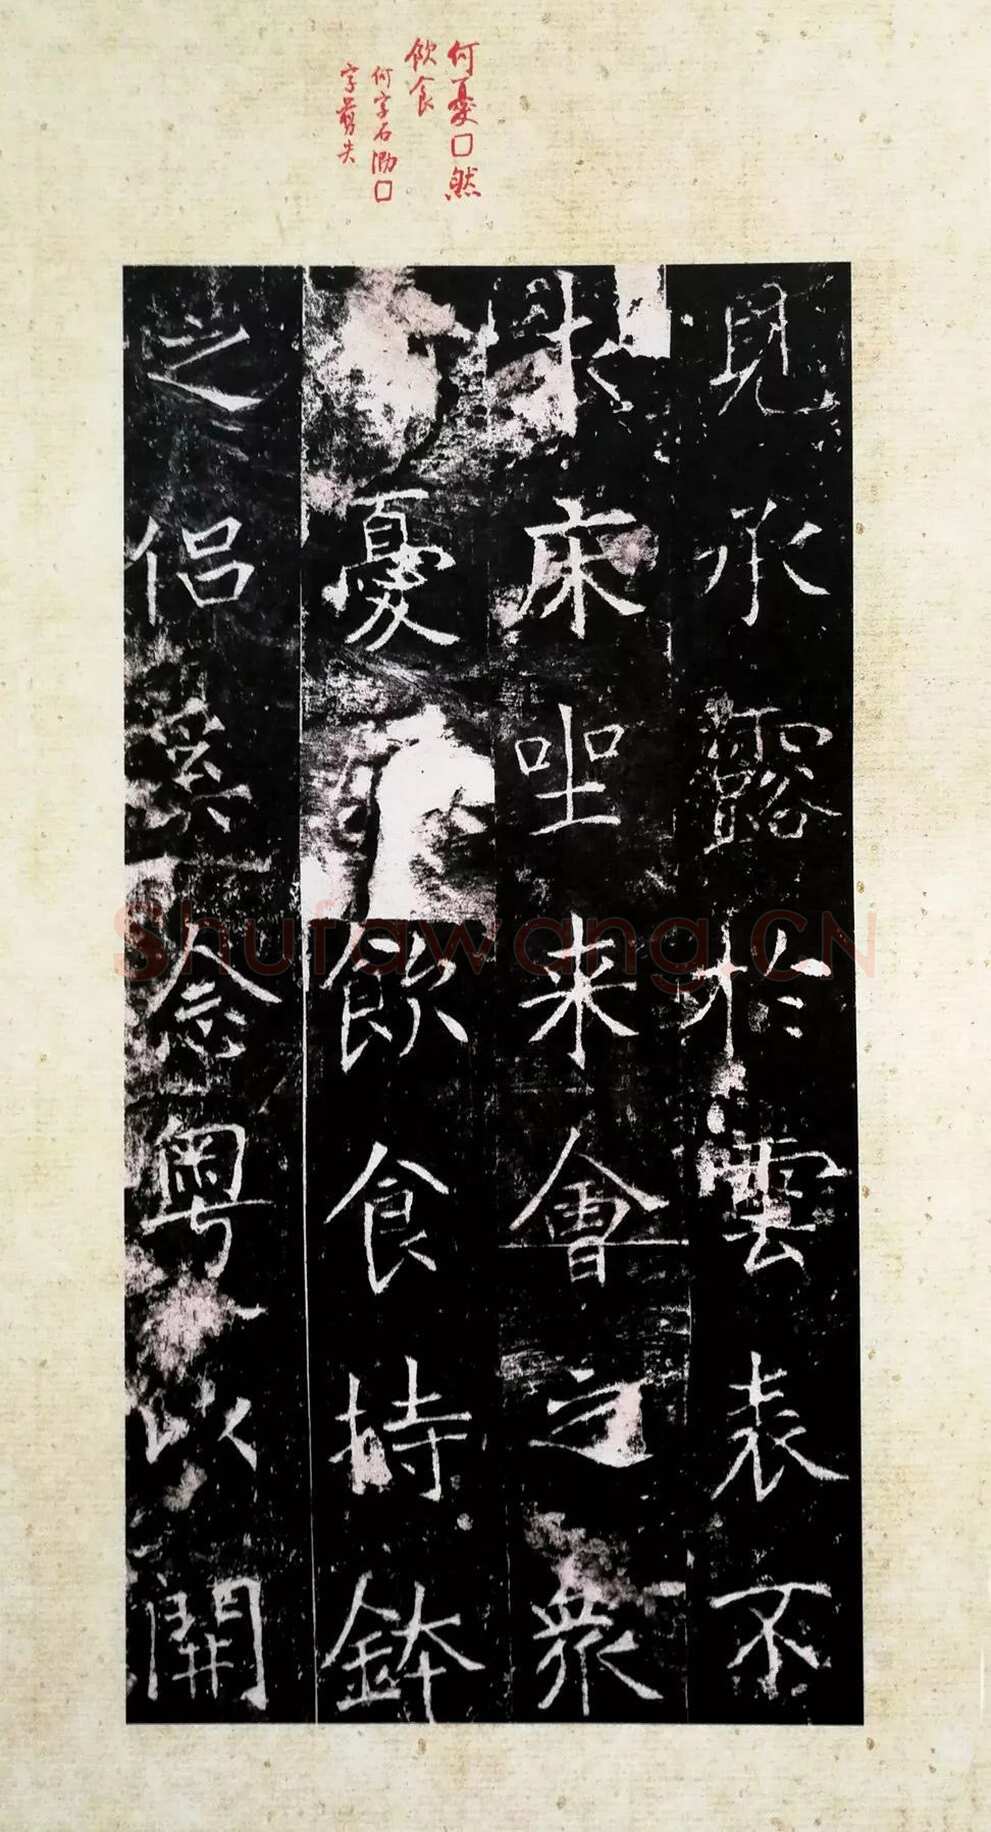 何憂□然
飲食
何字石泐□
字剪失
見承露於雲表不
求床坐来會之衆
憂飲食持鉢
之侶奚念粵以開
Shufawang.CN